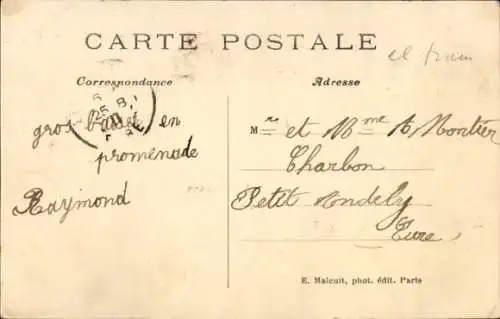 CARTE POSTALE
el tram
Correspondance
Adresse
25 8
gros en
promenade
Raymond
Mr et Mme A Montier
Charbon
Petit Andely
Eure
E. Malcuit, phot. édit. Paris